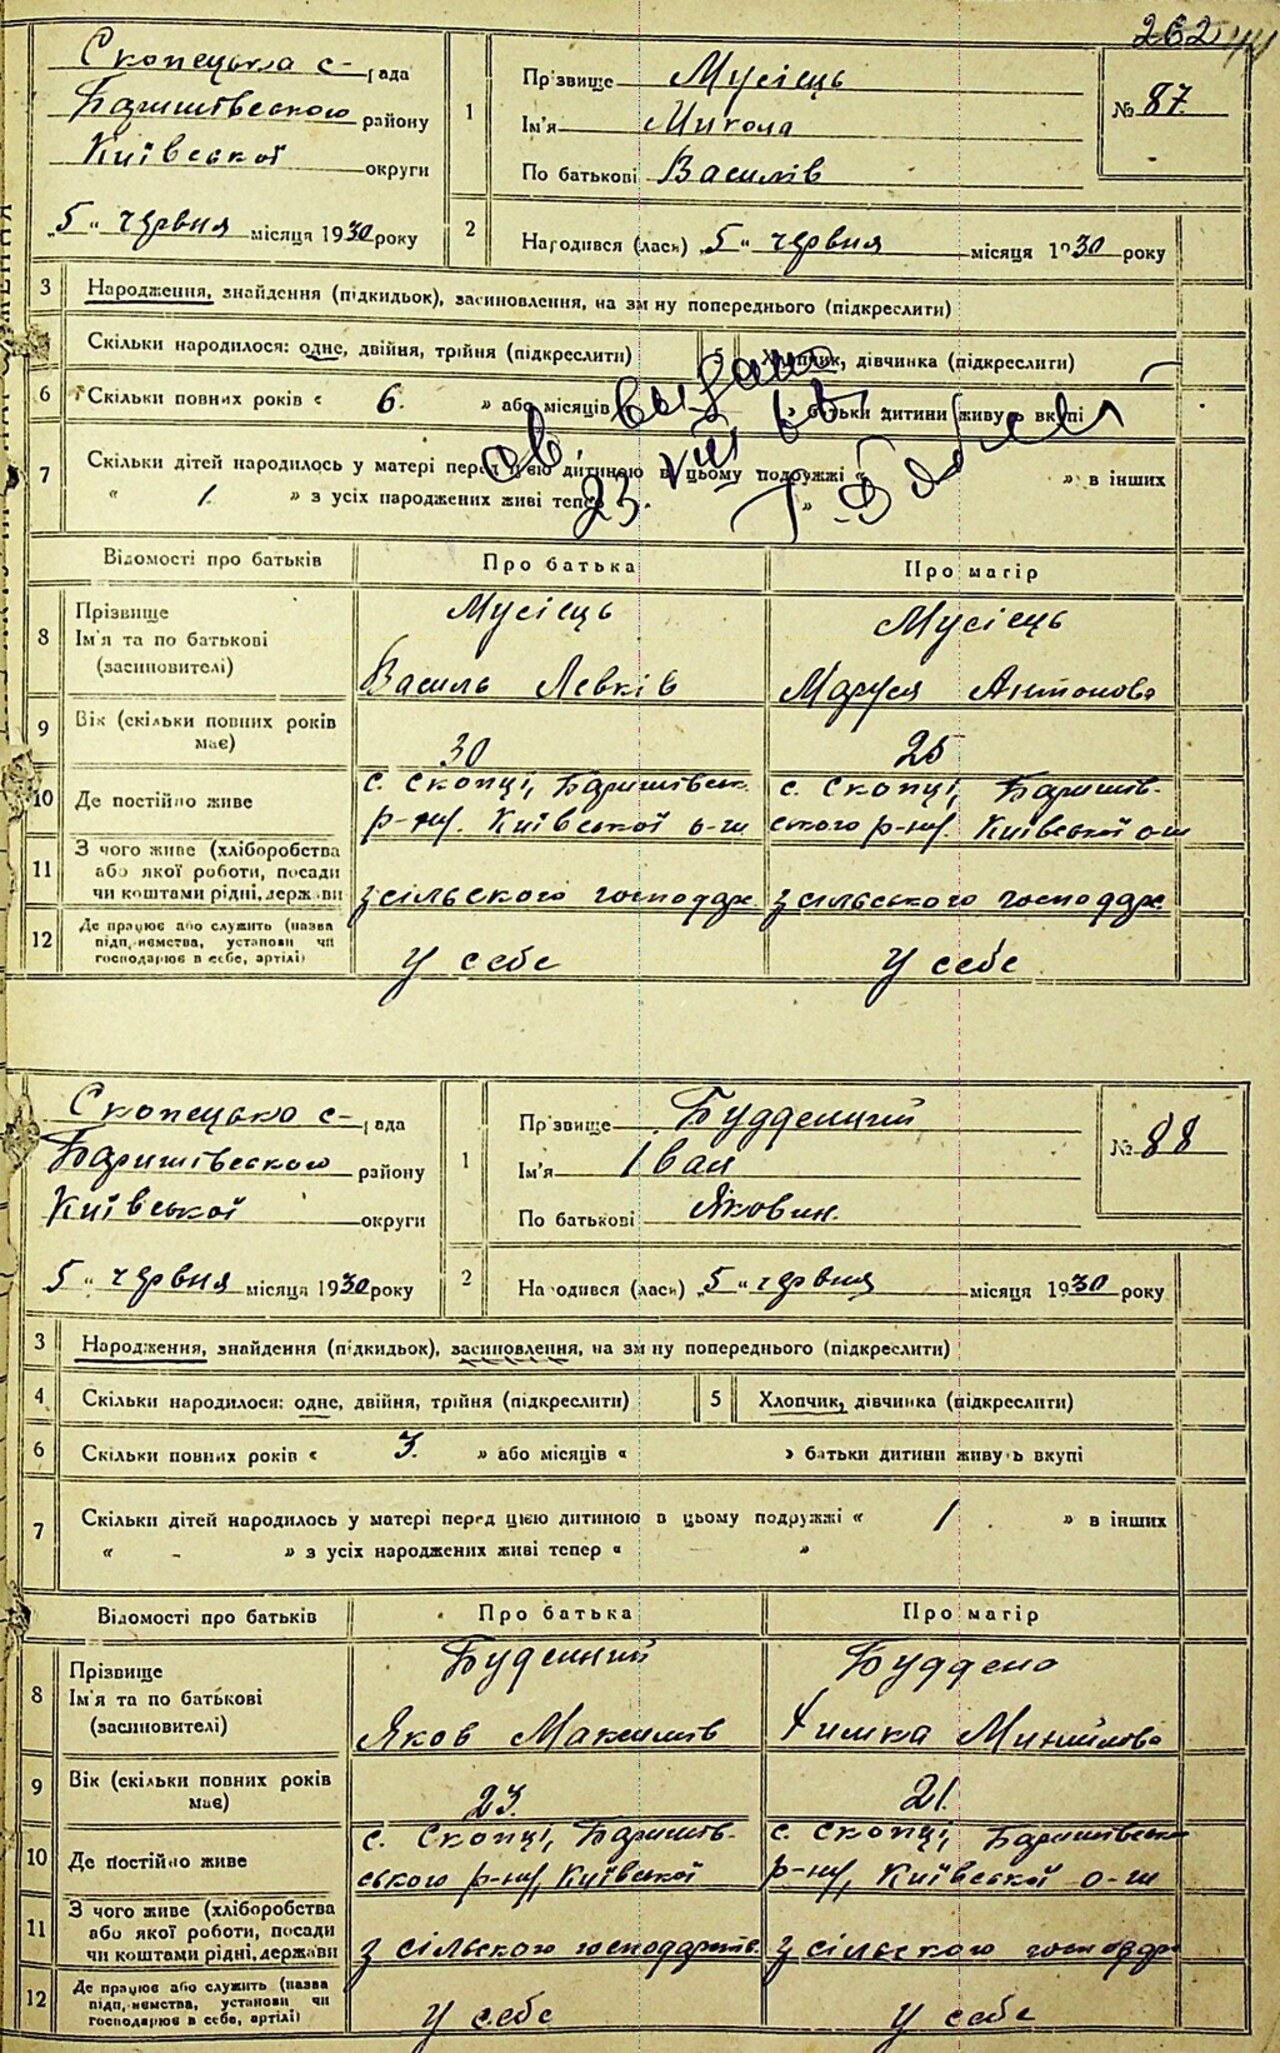 262
Скопецька с-рада
Баришівського району
Київської округи
„5" червня місяця 1930 року
1
Прізвище Мусієць
Ім'я Микола
По батькові Василів
№ 87
2
Народився (лася) „5" червня місяця 1930 року
3 Народження, знайдення (підкидьок), засиновлення, на зміну попереднього (підкреслити)
Скільки народилося: одне, двійня, трійня (підкреслити) 5 Хлопчик, дівчинка (підкреслити)
6 Скільки повних років « 6. » або місяців » батьки дитини живуть вкупі
7 Скільки дітей народилось у матері перед цією дитиною в цьому подружжі « » в інших
« 1. » з усіх народжених живі тепер »
св. выдано
23. VIII
Відомості про батьків Про батька Про матір
8 Прізвище Мусієць Мусієць
Ім'я та по батькові
(засиновителі) Василь Левків Маруся Антонова
9 Вік (скільки повних років
має) 30 25
10 Де постійно живе с. Скопці, Баришівськ. р-ну. Київської о-ги с. Скопці, Баришів-ського р-ну. Київської о-ги
11 З чого живе (хліборобства
або якої роботи, посади
чи коштами рідні, держави з сільского господар. з сільського господар.
12 Де працює або служить (назва
підприємства, установи чи
господарює в себе, артілі) У себе У себе
Скопецька с-рада
Баришівського району
Київської округи
5 " червня місяця 1930 року
1
Прізвище Будденний
Ім'я Іван
По батькові Яковин.
№ 88
2
Народився (лася) „5 " червня місяця 1930 року
3 Народження, знайдення (підкидьок), засиновлення, на зміну попереднього (підкреслити)
4 Скільки народилося: одне, двійня, трійня (підкреслити) 5 Хлопчик, дівчинка (підкреслити)
6 Скільки повних років « 3. » або місяців « » батьки дитини живуть вкупі
7 Скільки дітей народилось у матері перед цією дитиною в цьому подружжі « 1 » в інших
« - » з усіх народжених живі тепер « »
Відомості про батьків Про батька Про матір
8 Прізвище Буденний Буддена
Ім'я та по батькові
(засиновителі) Яков Максимів Химка
9 Вік (скільки повних років
має) 23. 21.
10 Де постійно живе с. Скопці, Баришів-ського р-ну, Київської с. Скопці, Баришівськ р-ну, Київської о-ги
11 З чого живе (хліборобства
або якої роботи, посади
чи коштами рідні, держави з сільского господарств. з сільского господар
12 Де працює або служить (назва
підприємства, установи чи
господарює в себе, артілі) У себе У себе